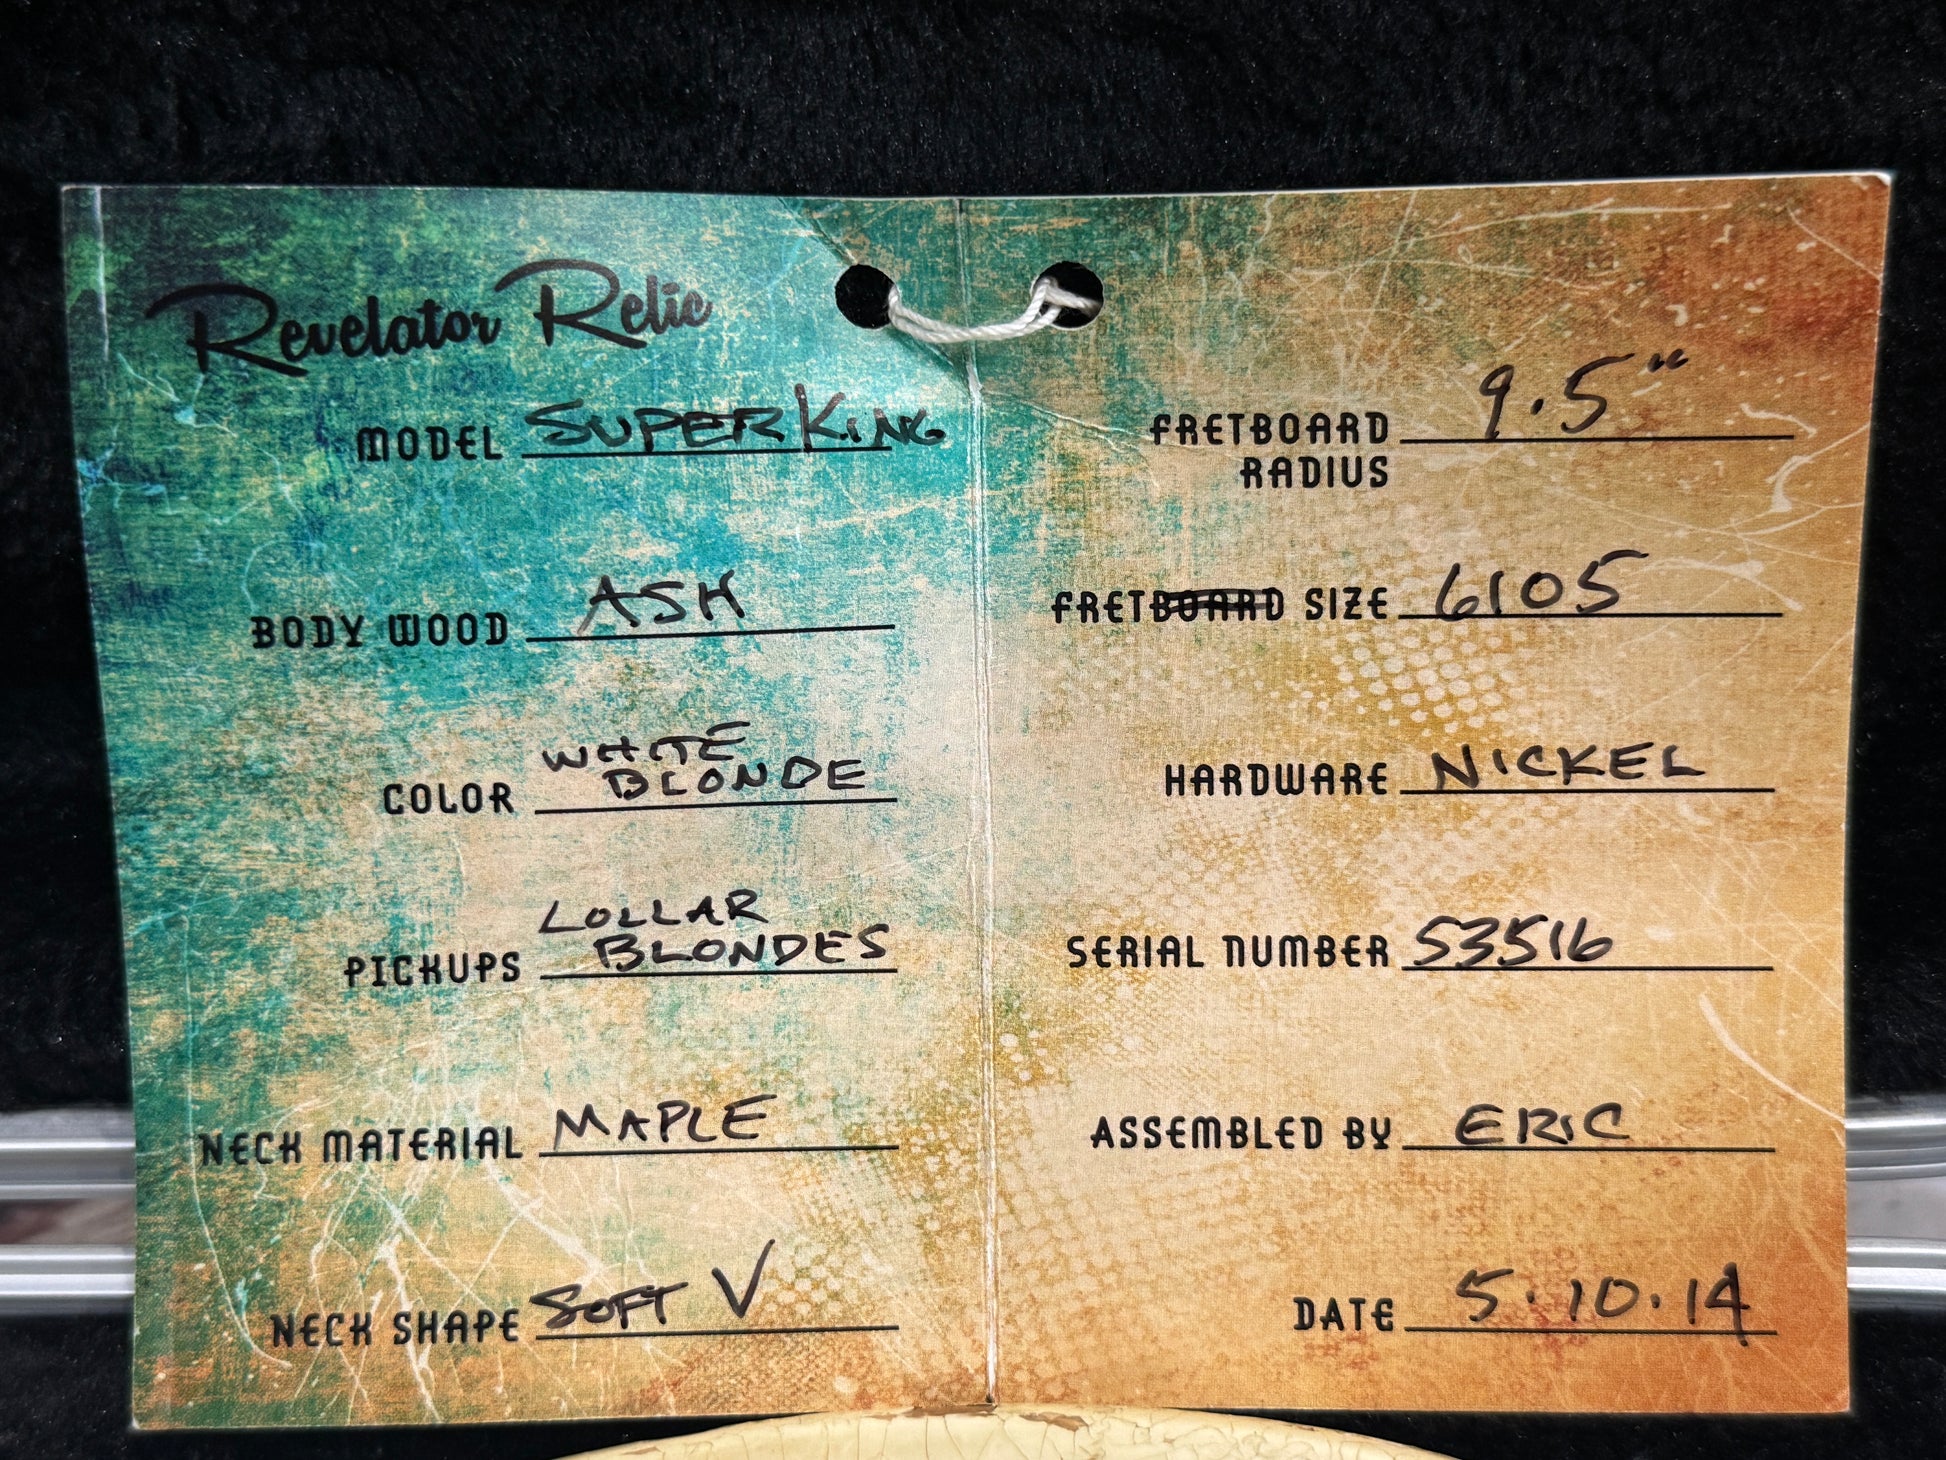 Revelator Relic
MODEL SUPER KING
BODY WOOD ASH
COLOR WHITE
BLONDE
PICKUPS LOLLAR
BLONDES
NECK MATERIAL MAPLE
NECK SHAPE SOFT V
FRETBOARD 9.5"
RADIUS
FRETBOARD SIZE 6105
HARDWARE NICKEL
SERIAL NUMBER 53516
ASSEMBLED BY ERIC
DATE 5.10.14